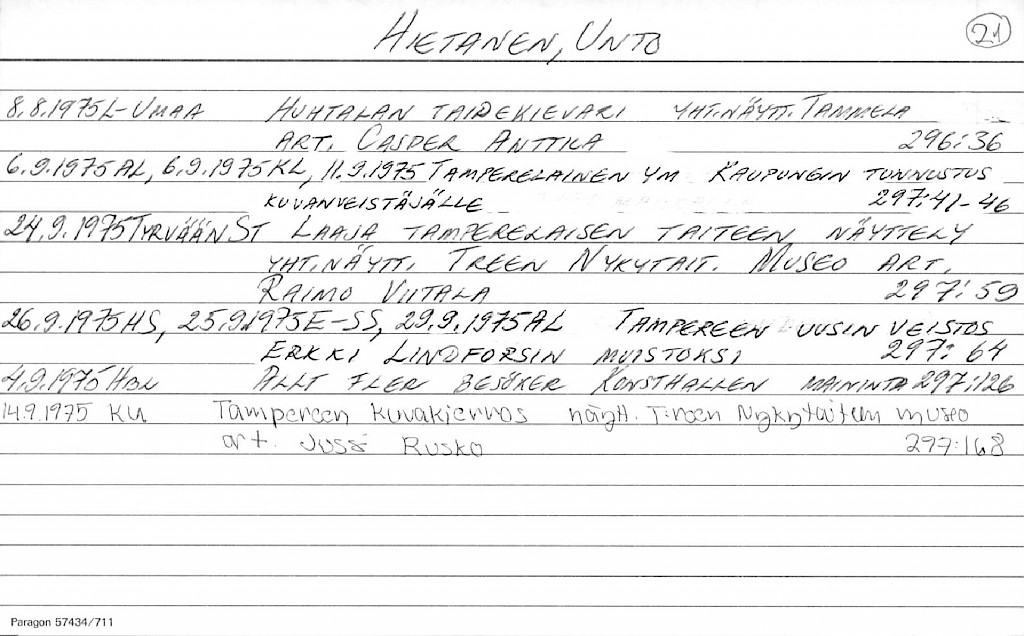 HIETANEN, UNTO 21
8.8.1975 L-UMAA HUHTALAN TAIDEKIEVARI YHT.NÄYTT. TAMMELA
ART. CASPER ANTTILA 296:36
6.9.1975 AL, 6.9.1975 KL, 11.9.1975 TAMPERELAINEN YM KAUPUNGIN TUNNUSTUS
KUVANVEISTÄJÄLLE 297:41-46
24.9.1975 TYRVÄÄN ST LAAJA TAMPERELAISEN TAITEEN NÄYTTELY
YHT.NÄYTT. TREEN NYKYTAIT. MUSEO ART.
RAIMO VIITALA 297:59
26.9.1975 HS, 25.9.1975 E-SS, 29.9.1975 AL TAMPEREEN UUSIN VEISTOS
ERKKI LINDFORSIN MUISTOKSI 297:64
4.9.1975 HBL ALLT FLER BESÖKER KONSTHALLEN MAININTA 297:126
14.9.1975 KU Tampereen kuvakierros näytt. T:reen Nykytaiteen museo
art. Jussi Rusko 297:168
Paragon 57434/711